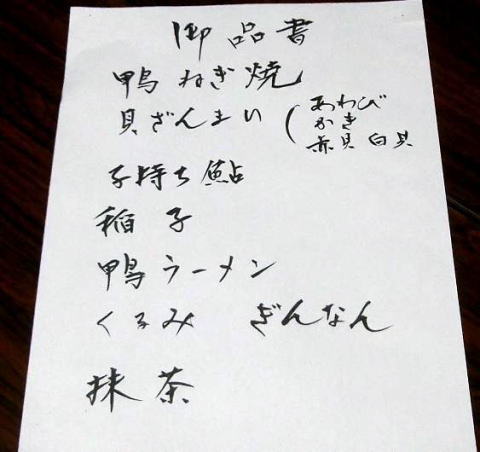 御品書
鴨ねぎ焼
貝ざんまい(あわび
かき
赤貝 白貝
子持ち鮎
稲子
鴨ラーメン
くるみ ぎんなん
抹茶